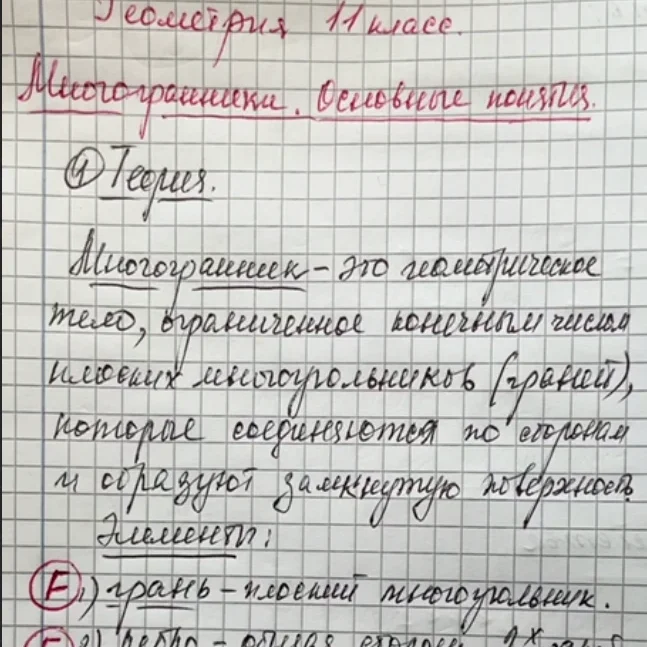 Геометрия 11 класс.
Многогранники. Основные понятия.
1 Теория.
Многогранник - это геометрическое
тело, ограниченное конечным числом
плоских многоугольников (граней),
которые соединяются по сторонам
и образуют замкнутую поверхность.
Элементы:
F 1) грань - плоский многоугольник.
2) ребро - общая сторона 2х